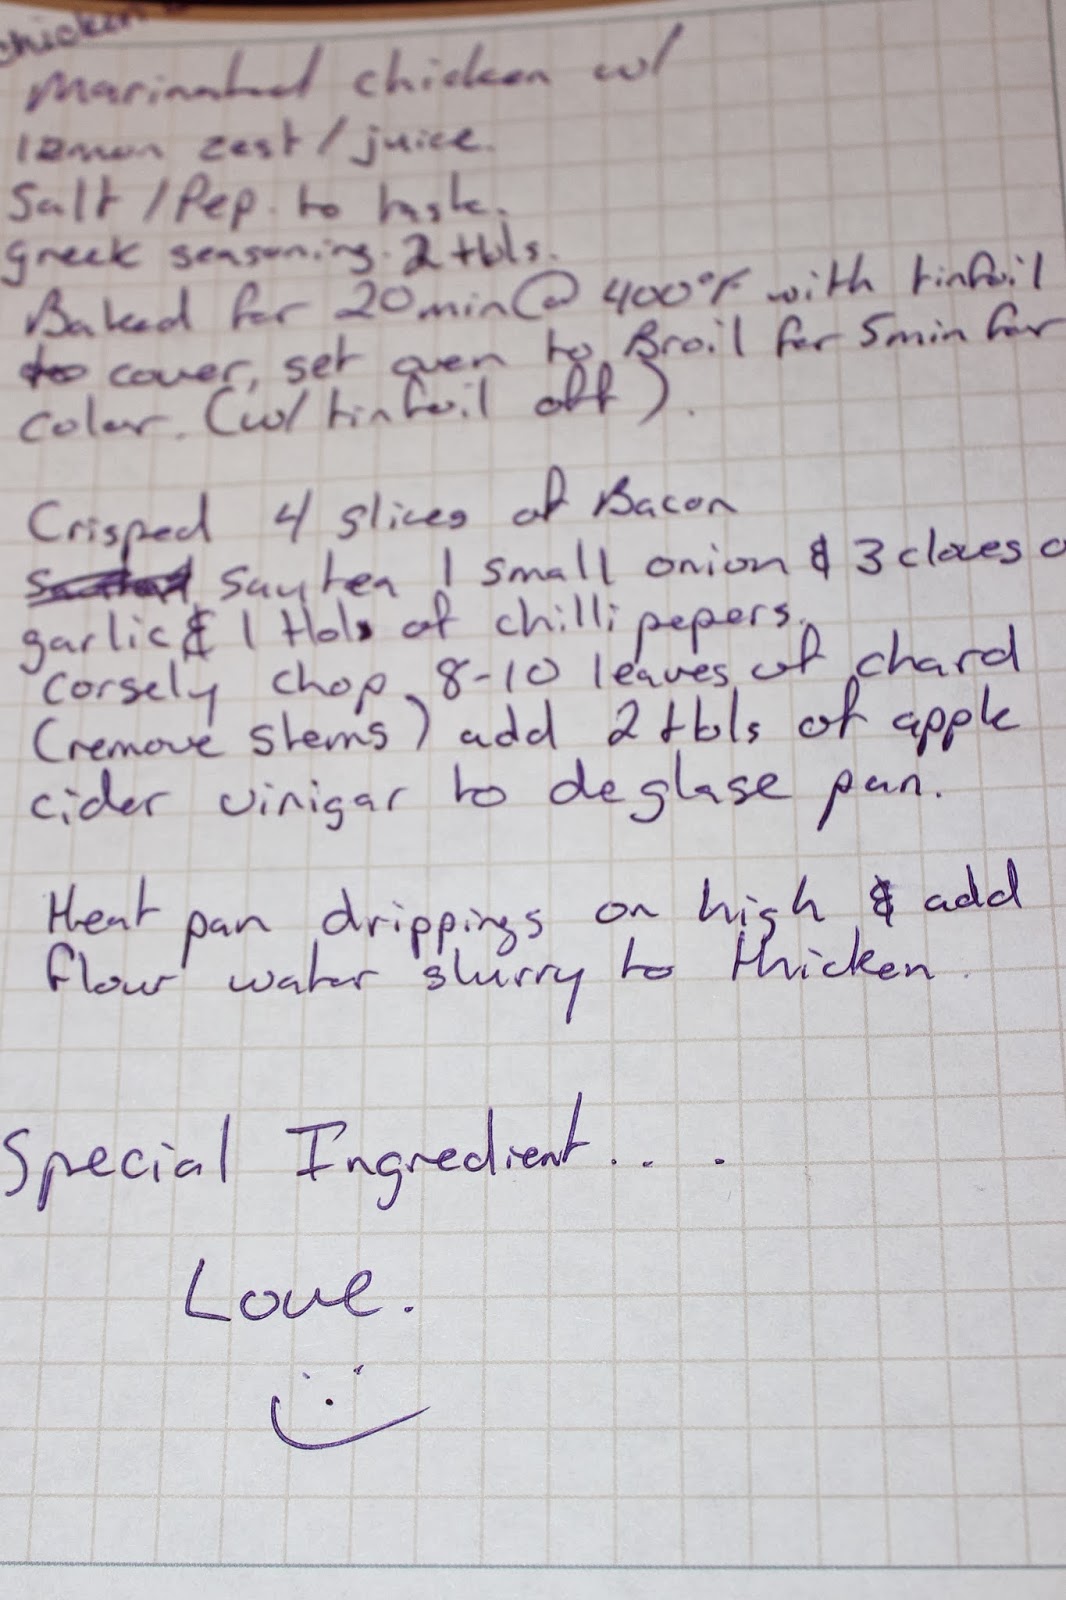 chicken
Marinated chicken w/
lemon zest / juice.
Salt / Pep. to taste.
greek seasoning. 2 tbls.
Baked for 20min @ 400°F with tinfoil
to cover, set oven to Broil for 5min for
color. (w/ tinfoil off).
Crisped 4 slices of Bacon
sauten 1 small onion & 3 cloves o
garlic & 1 tbls of chilli pepers.
corsely chop 8-10 leaves of chard
(remove stems) add 2 tbls of apple
cider vinigar to deglase pan.
Heat pan drippings on high & add
flour water slurry to thicken.
Special Ingredient....
Love.